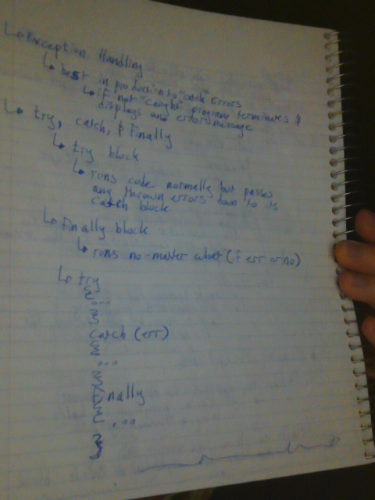 ↳ Exception Handling
↳ best in production to "catch" errors
↳ if not "caught" program terminates &
displays and error message
↳ try, catch, & finally
↳ try block
↳ runs code normally but passes
any thrown errors down to its
catch block
↳ finally block
↳ runs no-matter what (if err or no)
↳ try
{
...
}
catch (err)
{
...
}
finally
{
...
}